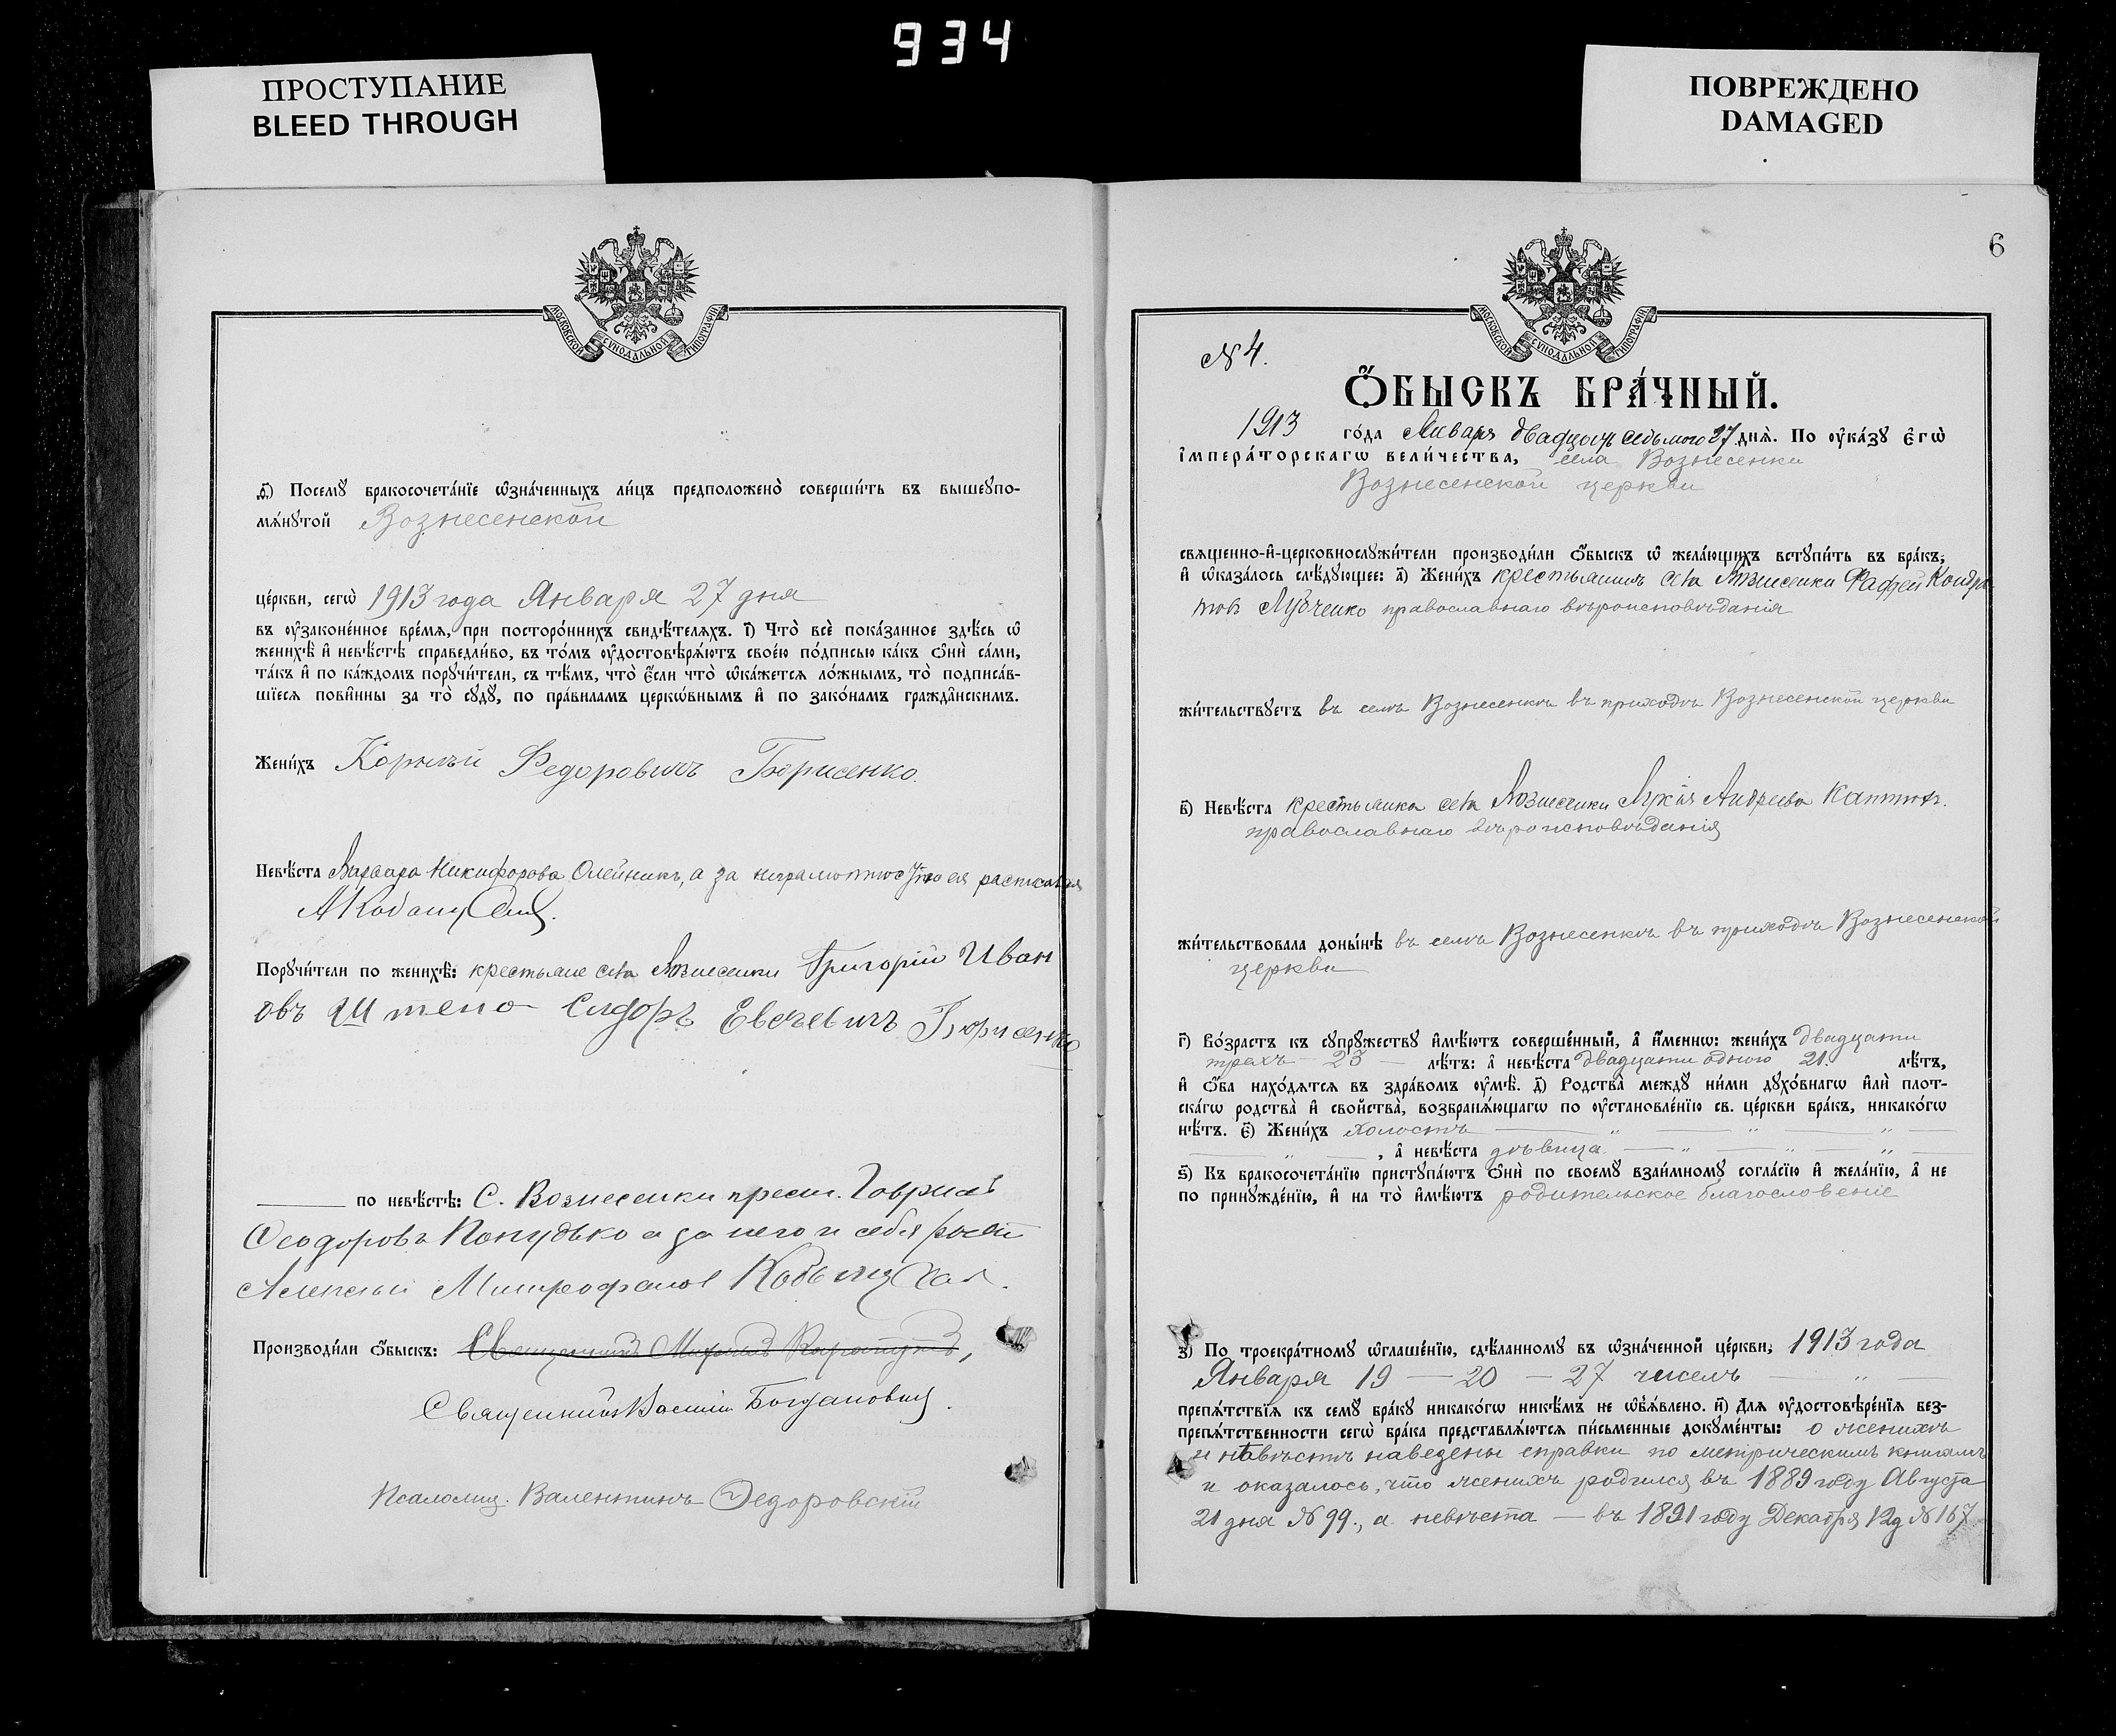 934
ПРОСТУПАНИЕ
BLEED THROUGH
ПОВРЕЖДЕНО
DAMAGED
МОСКОВСКОЙ СѴНОДАЛЬНОЙ ТИПОГРАФІИ
ѳ҃) Посемꙋ̀ бракосочета́нїе ѡзна́ченныхъ ли́цъ предположено̀ соверши́ть въ вышеꙋпо-
мѧ́нꙋтой Вознесенской
це́ркви, сегѡ̀ 1913 года Января 27 дня
въ оу҆законе́нное вре́мѧ, при посторо́ннихъ свидѣ́телѧхъ. і҃) Что̀ всѐ пока́занное здѣ́сь ѡ
женихѣ̀ и҆ невѣ́стѣ справедли́во, въ то́мъ оу҆достовѣрѧ́ютъ свое́ю по́дписью ка́къ ѻ҆нѝ са́ми,
та́къ и҆ по ка́ждомъ порꙋчи́тели, съ тѣ́мъ, что̀ є҆́сли что̀ ѡ҆ка́жетсѧ ло́жнымъ, то̀ подписа́в-
шїесѧ пови́нны за то̀ сꙋдꙋ̀, по пра́виламъ церко́внымъ и҆ по зако́намъ гражда́нскимъ.
Жени́хъ Корнилій Федоровичъ Борисенко.
Невѣ́ста Варвара Никифорова Олейникъ, а за неграмотностью ея расписался
Порꙋчи́тели по женихѣ̀: крестьяне села Вознесенки Григорій Иван
овъ Штепо Сидоръ Евсеевичъ Борисенко
по невѣ́стѣ: С. Вознесенки крест. Гавриилъ
Феодоровъ а за него и себя росп.
Алексей Митрофанов
Производи́ли ѻ҆́быскъ: Священникъ
Священникъ Василій Богданович.
Псаломщ. Валентинъ Федоровскій
6
МОСКОВСКОЙ СѴНОДАЛЬНОЙ ТИПОГРАФІИ
№ 4.
Ѻ҆́БЫСКЪ БРА́ЧНЫЙ.
1913 го́да Января двадцать седьмого 27 днѧ̀. По оу҆ка́зꙋ Є҆гѡ̀
І҆мпера́торскагѡ вели́чества, села Вознесенки
Вознесенской церкви
свѧщенно-и҆-церковнослꙋжи́тели производи́ли ѻ҆́быскъ ѡ҆ жела́ющихъ встꙋпи́ть въ бра́къ,
и҆ ѡ҆каза́лось слѣ́дꙋющее: а҃) Жени́хъ крестьянинъ села Вознесенки Фаддей Кондра
товъ Лубченко православнаго вѣроисповѣданія
жи́тельствꙋетъ въ селѣ Вознесенкѣ въ приходѣ Вознесенской церкви
в҃) Невѣ́ста крестьянка села Вознесенки Лукія Андреева
православнаго вѣроисповѣданія
жи́тельствовала доны́нѣ въ селѣ Вознесенкѣ въ приходѣ Вознесенской
церкви
г҃) Во́зрастъ къ сꙋпрꙋ́жествꙋ и҆мѣ́ютъ соверше́нный, а҆ и҆́меннѡ: жени́хъ двадцати
трехъ — 23 — лѣ́тъ: а҆ невѣ́ста двадцати одного 21. лѣ́тъ,
и҆ ѻ҆́ба нахо́дѧтсѧ въ здра́вомъ оу҆мѣ̀. д҃) Родства̀ междꙋ ни́ми дꙋхо́внагѡ и҆лѝ плот-
ска́гѡ родства̀ и҆ свойства̀, возбранѧ́ющагѡ по оу҆становле́нїю св. це́ркви бра́къ, никако́гѡ
нѣ́тъ. є҃) Жени́хъ холостъ — „ — „ — „ —
— „ —, а҆ невѣ́ста дѣвица — „ — „ — „ —
ѕ҃) Къ бракосочета́нїю пристꙋпа́ютъ ѻ҆нѝ по своемꙋ̀ взаи́мномꙋ согла́сїю и҆ жела́нїю, а҆ не
по принꙋжде́нїю, и҆ на то̀ и҆мѣ́ютъ родительское благословеніе
з҃) По троекра́тномꙋ ѡ҆глаше́нїю, сдѣ́ланномꙋ въ ѡ҆зна́ченной це́ркви, 1913 года
Января 19 — 20 — 27 чиселъ — „ —
препѧ́тствїѧ къ семꙋ̀ бра́кꙋ никако́гѡ никѣ́мъ не ѡ҆б̾ѧ́влено. и҃) Длѧ оу҆достовѣре́нїѧ без-
препѧ́тственности сегѡ̀ бра́ка представлѧ́ютсѧ пи́сьменные докꙋме́нты: о женихѣ
и невѣстѣ наведены справки по метрическимъ книгамъ
и оказалось, что женихъ родился въ 1889 году Августа
21 дня № 99., а невѣста — въ 1891 году Декабря 12 д № 167